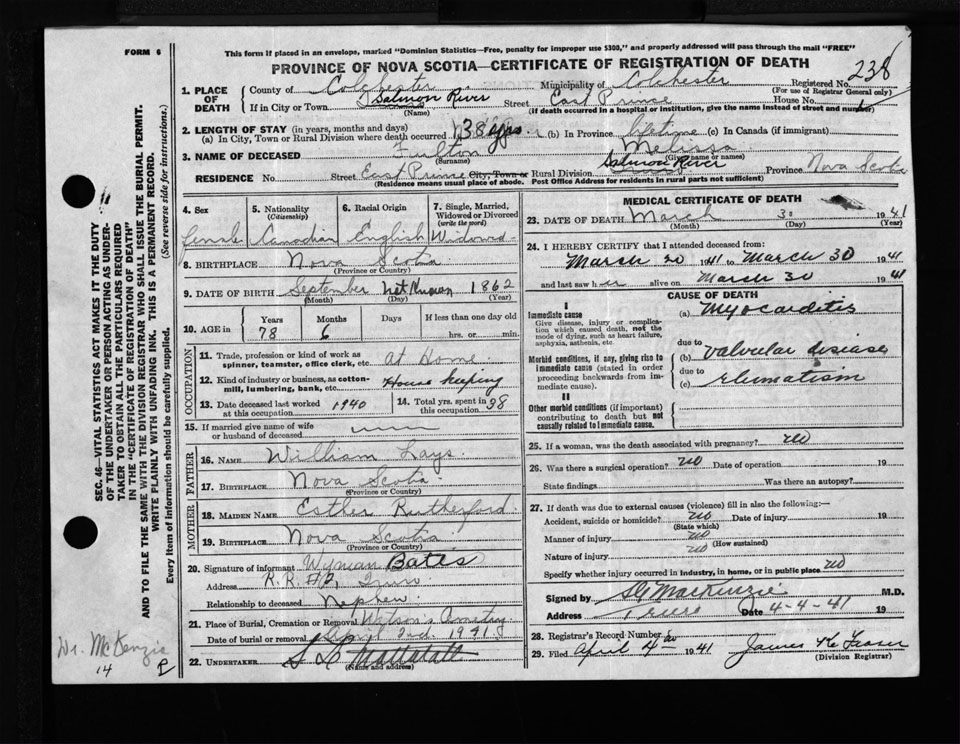 FORM 6
This form if placed in an envelope, marked "Dominion Statistics—Free, penalty for improper use $300," and properly addressed will pass through the mail "FREE"
PROVINCE OF NOVA SCOTIA—CERTIFICATE OF REGISTRATION OF DEATH
238
1. PLACE OF DEATH
County of Colchester Municipality of Colchester Registered No.
(For use of Registrar General only)
If in City or Town Salmon River Street East Prince House No.
(Name) (If death occurred in a hospital or institution, give the name instead of street and number)
2. LENGTH OF STAY (in years, months and days)
(a) In City, Town or Rural Division where death occurred 38 yrs (b) In Province lifetime (c) In Canada (if immigrant)
3. NAME OF DECEASED Fulton Melissa
(Surname) (Given name or names)
RESIDENCE No. Street East Prince City, Town or Rural Division Salmon River Province Nova Scotia
(Residence means usual place of abode. Post Office Address for residents in rural parts not sufficient)
4. Sex female
5. Nationality (Citizenship) Canadian
6. Racial Origin English
7. Single, Married, Widowed or Divorced (write the word) Widowed
8. BIRTHPLACE Nova Scotia
(Province or Country)
9. DATE OF BIRTH September Not Known 1862
(Month) (Day) (Year)
10. AGE in Years Months Days If less than one day old
78 6 hrs. or min.
OCCUPATION
11. Trade, profession or kind of work as spinner, teamster, office clerk, etc. at Home
12. Kind of industry or business, as cotton-mill, lumbering, bank, etc. House keeping
13. Date deceased last worked at this occupation 1940
14. Total yrs. spent in this occupation 38
15. If married give name of wife or husband of deceased
FATHER
16. NAME William
17. BIRTHPLACE Nova Scotia
(Province or Country)
MOTHER
18. MAIDEN NAME Esther Rutherford
19. BIRTHPLACE Nova Scotia
(Province or Country)
20. Signature of informant Wyman Bates
Address R.R. #2, Truro
Relationship to deceased Nephew
21. Place of Burial, Cremation or Removal Watson's Cemetery
Date of burial or removal April 2nd. 1941
22. UNDERTAKER
(Name and address)
MEDICAL CERTIFICATE OF DEATH
23. DATE OF DEATH March 30 1941
(Month) (Day) (Year)
24. I HEREBY CERTIFY that I attended deceased from:
March 20 1941 to March 30 1941
and last saw her alive on March 30 1941
CAUSE OF DEATH
I
Immediate cause
Give disease, injury or complication which caused death, not the mode of dying, such as heart failure, asphyxia, asthenia, etc.
(a) Myocarditis
due to
Morbid conditions, if any, giving rise to immediate cause (stated in order proceeding backwards from immediate cause).
(b) valvular disease
due to
(c) rheumatism
II
Other morbid conditions (if important) contributing to death but not causally related to immediate cause.
25. If a woman, was the death associated with pregnancy? no
26. Was there a surgical operation? no Date of operation 19
State findings Was there an autopsy?
27. If death was due to external causes (violence) fill in also the following:—
Accident, suicide or homicide? no Date of injury 19
(State which)
Manner of injury no
(How sustained)
Nature of injury no
Specify whether injury occurred in industry, in home, or in public place no
Signed by MacKenzie M.D.
Address Truro 4-4-41 19
28. Registrar's Record Number
29. Filed April 4 1941 James
(Division Registrar)
SEC. 46—VITAL STATISTICS ACT MAKES IT THE DUTY
OF THE UNDERTAKER OR PERSON ACTING AS UNDER-
TAKER TO OBTAIN ALL THE PARTICULARS REQUIRED
IN THE "CERTIFICATE OF REGISTRATION OF DEATH"
AND TO FILE THE SAME WITH THE DIVISION REGISTRAR WHO SHALL ISSUE THE BURIAL PERMIT.
WRITE PLAINLY WITH UNFADING INK. THIS IS A PERMANENT RECORD.
Every item of information should be carefully supplied. (See reverse side for instructions.)
Dr. McKenzie
14